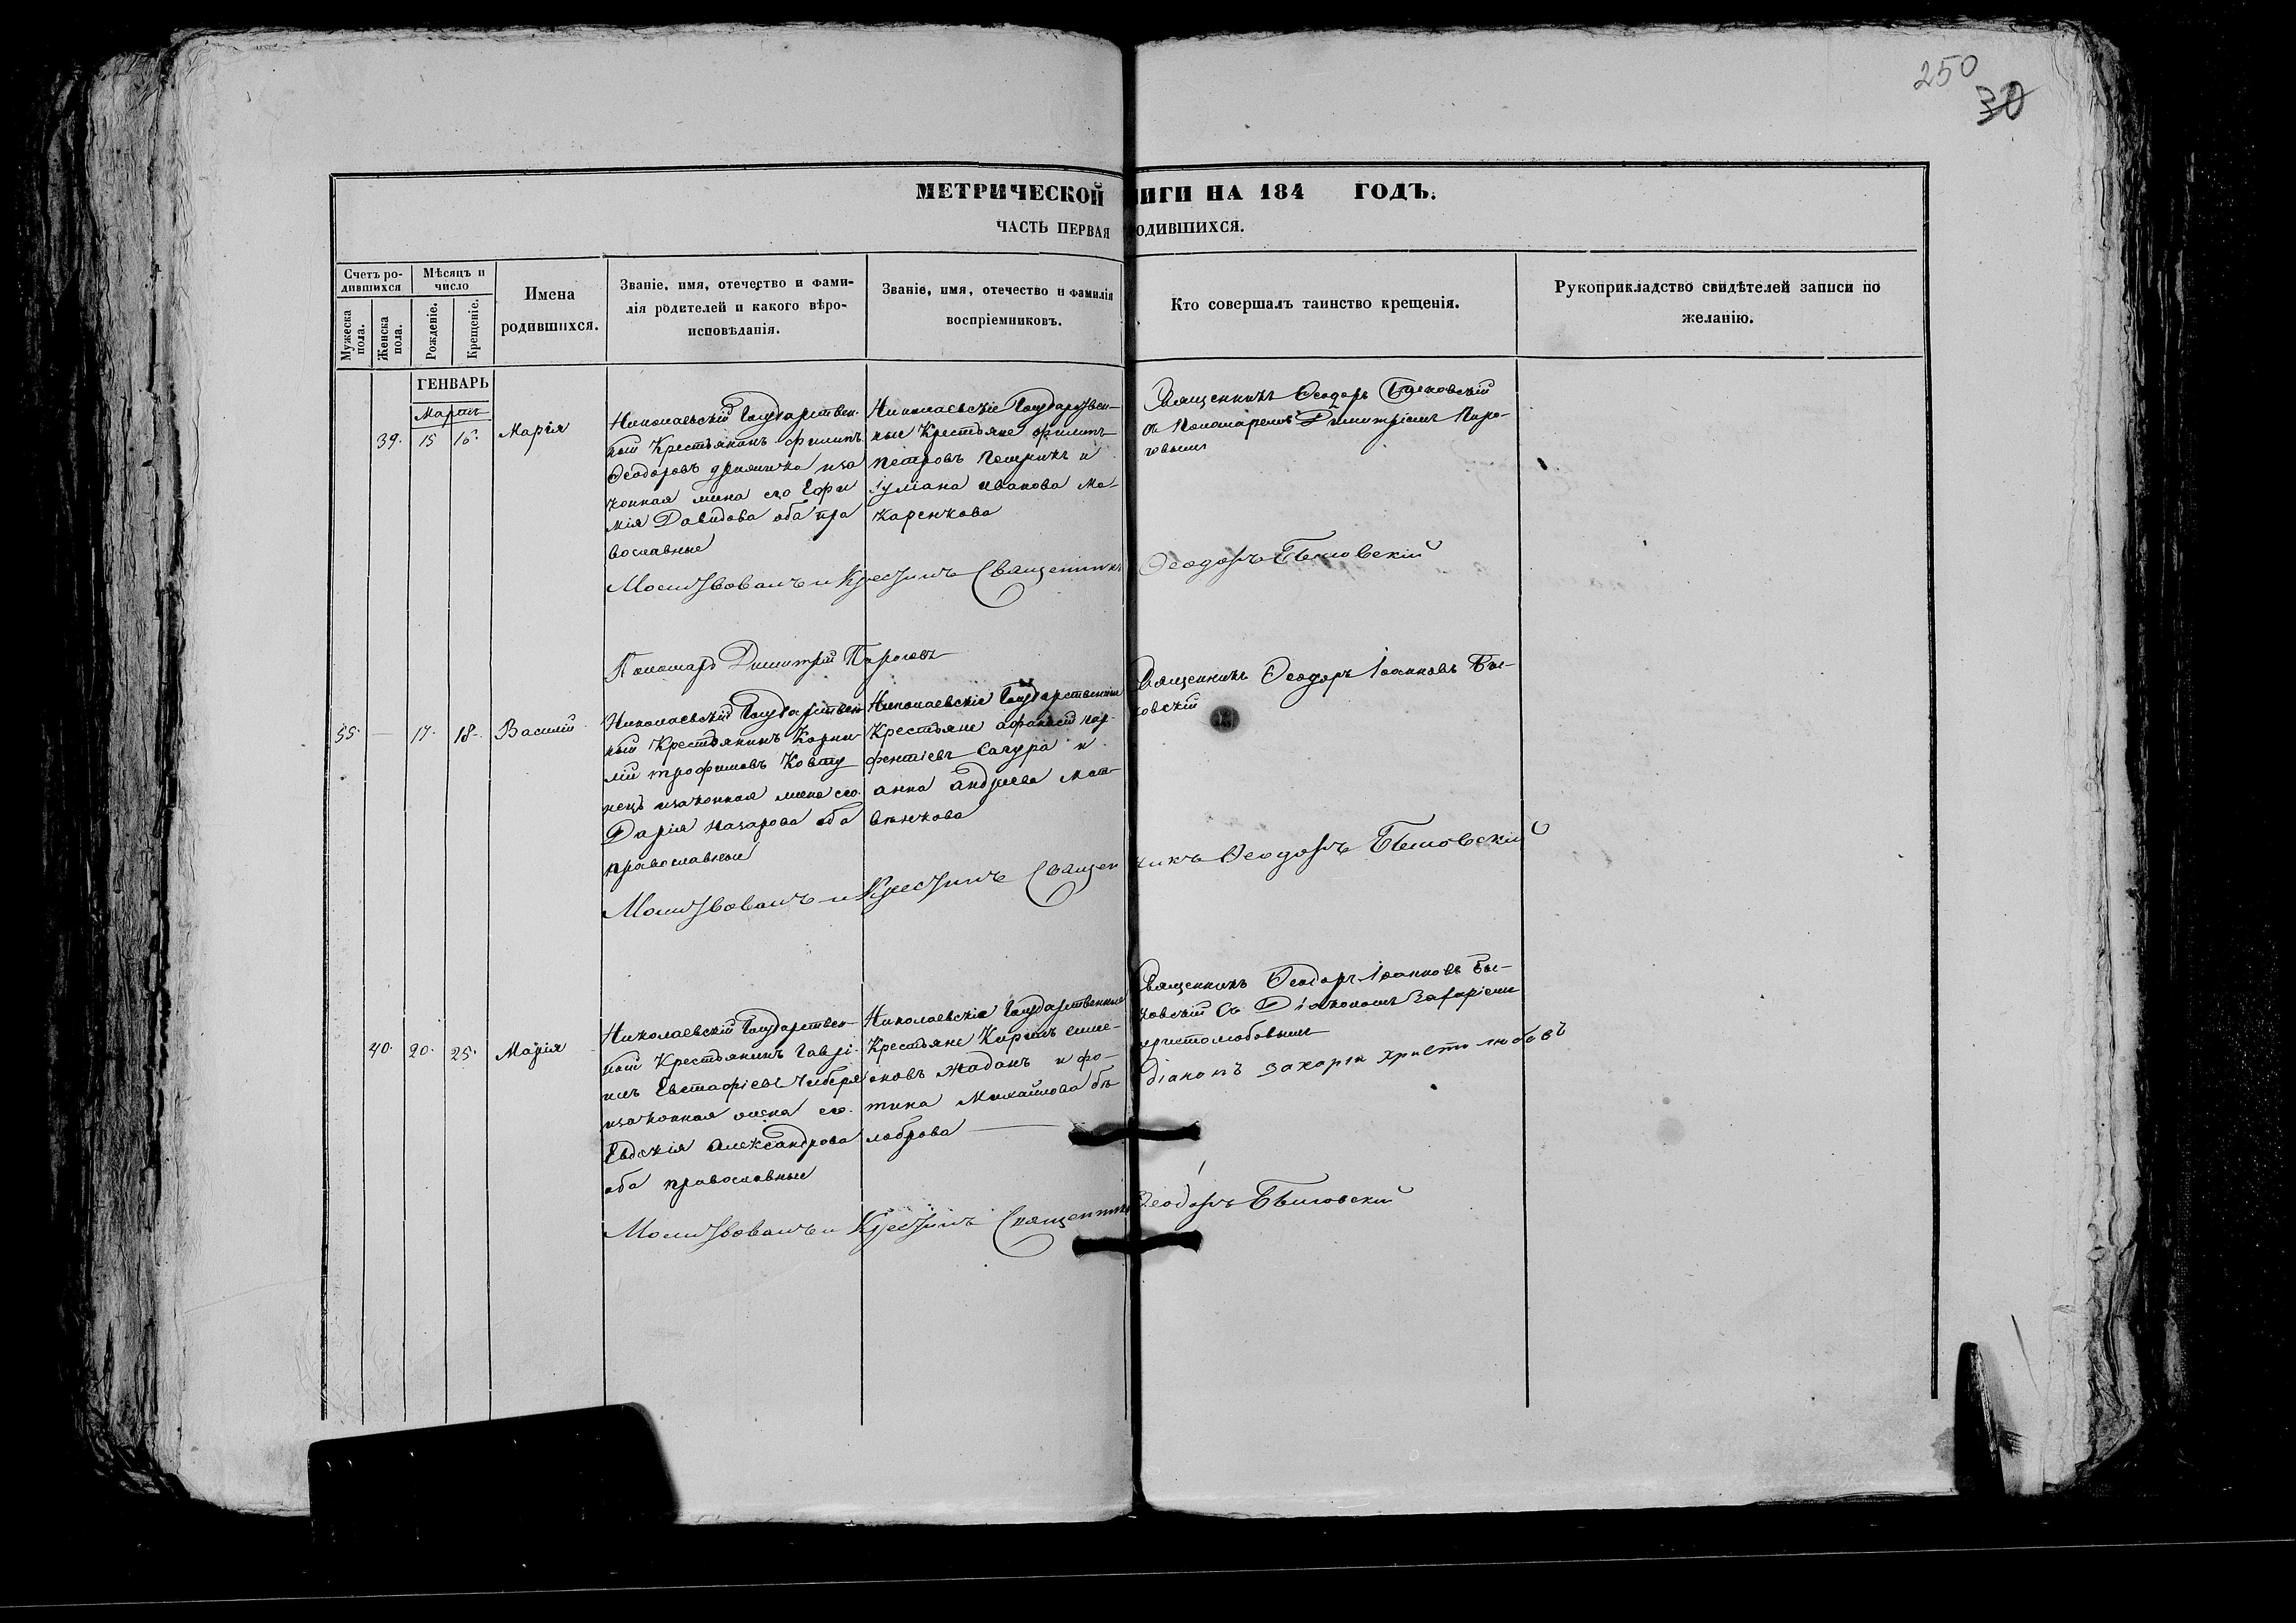 250
30
МЕТРИЧЕСКОЙ ИГИ НА 184 ГОДЪ.
ЧАСТЬ ПЕРВАЯ ОДИВШИХСЯ.
Счетъ ро-
дившихся
Мѣсяцъ и
число
Мужеска
пола.
Женска
пола.
Рожденіе.
Крещеніе.
Имена
родившихся.
Званіе, имя, отечество и фами-
лія родителей и какого вѣро-
исповѣданія.
Званіе, имя, отечество и фамилія
воспріемниковъ.
Кто совершалъ таинство крещенія.
Рукоприкладство свидѣтелей записи по
желанію.
ГЕНВАРЬ
Мартъ
39. 15 16. Марія
Николаевскій Государствен-
ный Крестьянинъ Филипъ
Феодоровъ иза
конная жена его Ефи
мія Давидова оба пра
вославные
Николаевскіе Государствен-
ные Крестьяне Филипъ
Петровъ и
Іуліана Иванова Ма-
каренкова
Священникъ Феодоръ
съ Пономаремъ Димитріемъ Пиро-
говымъ
Молитвовалъ и Крестилъ Священникъ Феодоръ
Пономарь Димитрій Пироговъ
55. — 17. 18. Василій
Николаевскій Государствен
ный Крестьянинъ Корни-
лій Трофимовъ Ковту
нецъ изаконная жена его
Дарія Назарова оба
православные
Николаевскіе Государственные
Крестьяне Афанасій Пар-
фентіевъ Сачура и
Анна Андреева Мат-
вѣнкова
Священникъ Феодоръ Іоанновъ
ковскій
Молитвовалъ и Крестилъ Священникъ Феодоръ
40. 20. 25. Марія
Николаевскій Государствен-
ный Крестьянинъ Гаврі-
илъ Евстафіевъ Чиберя
изаконная жена его
Евдокія Александрова
оба православные
Николаевскіе Государственные
Крестьяне Кирилъ Симе-
оновъ Жаданъ и Фо-
тина Михайлова Бѣ
лоброва
Священникъ Феодоръ Іоанновъ
ковскій Съ Діакономъ Захаріемъ
Христолюбовымъ
діаконъ Захарія Христолюбовъ
Молитвовалъ и Крестилъ Священникъ Феодоръ